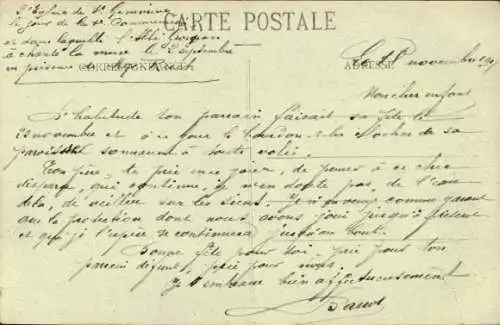 CARTE POSTALE
L'Eglise de Ste Geneviève
le jour de la 1re Communion
et dans laquelle l'Abbé
a chanté la messe le 2 Septembre
en présence de Mgr
CORRESPONDANCE
ADRESSE
Le 18 novembre 1919
Mon cher enfant
D'habitude ton parrain faisait sa fête le
22 novembre et à ce jour le bourdon et les cloches de sa
paroisse sonnaient à toute volée.
Ton père, te prie mon joier, de penser à ce cher
disparu, qui continue, je n'en doute pas, de l'au
delà, de veiller sur les siens. Je n'en veux comme garant
que la protection dont nous avons joui jusqu'à présent
et qui je l'espère se continuera jusqu'au bout.
Bonne fête pour toi, prie pour ton
parrain défunt, prie pour nous.
Je t'embrasse bien affectueusement